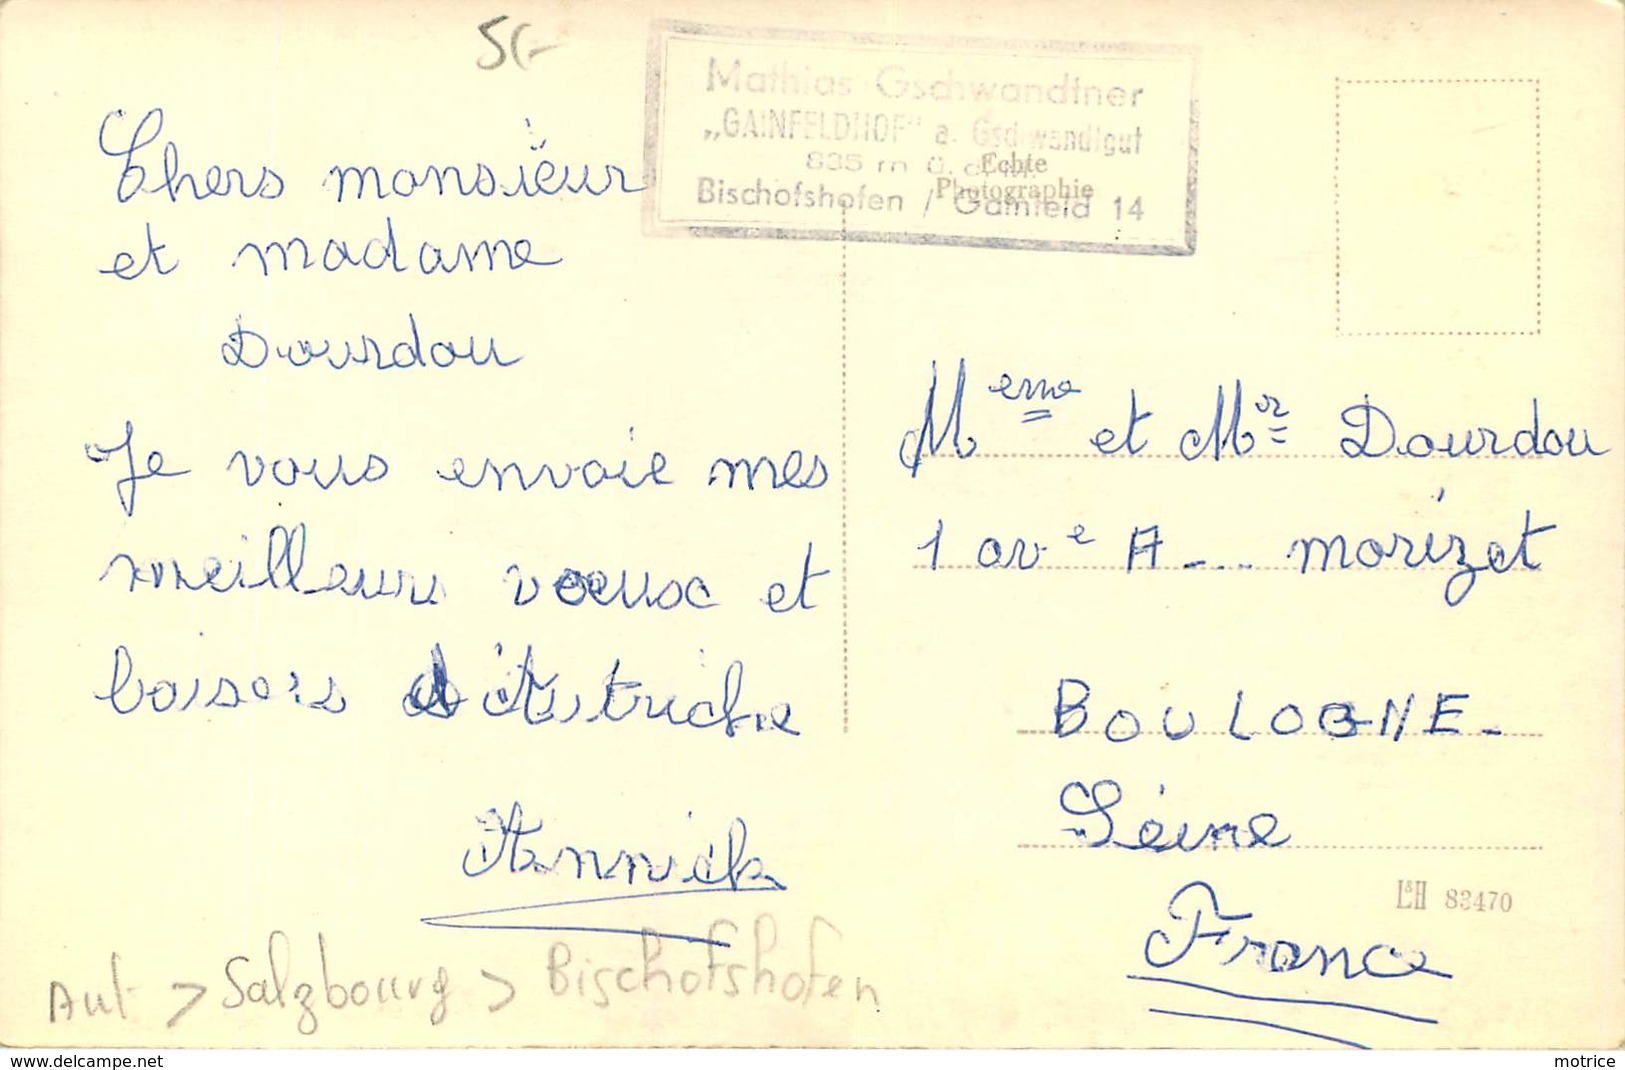 5€
Mathias Gschwandtner
„GAINFELDHOF" a. Gschwandtgut
835 m ü. d. M.
Bischofshofen / Gainfeld 14
Echte
Photographie
Chers monsiëur
et madame
Dourdou
Je vous envoie mes
meilleurs voeux et
baisers d'Autriche
Annick
Meme et Mr Dourdou
1 ave A-... morizet
BOULOGNE-
Séine
France
L&H 83470
Aut > Salzbourg > Bischofshofen
www.delcampe.net
motrice